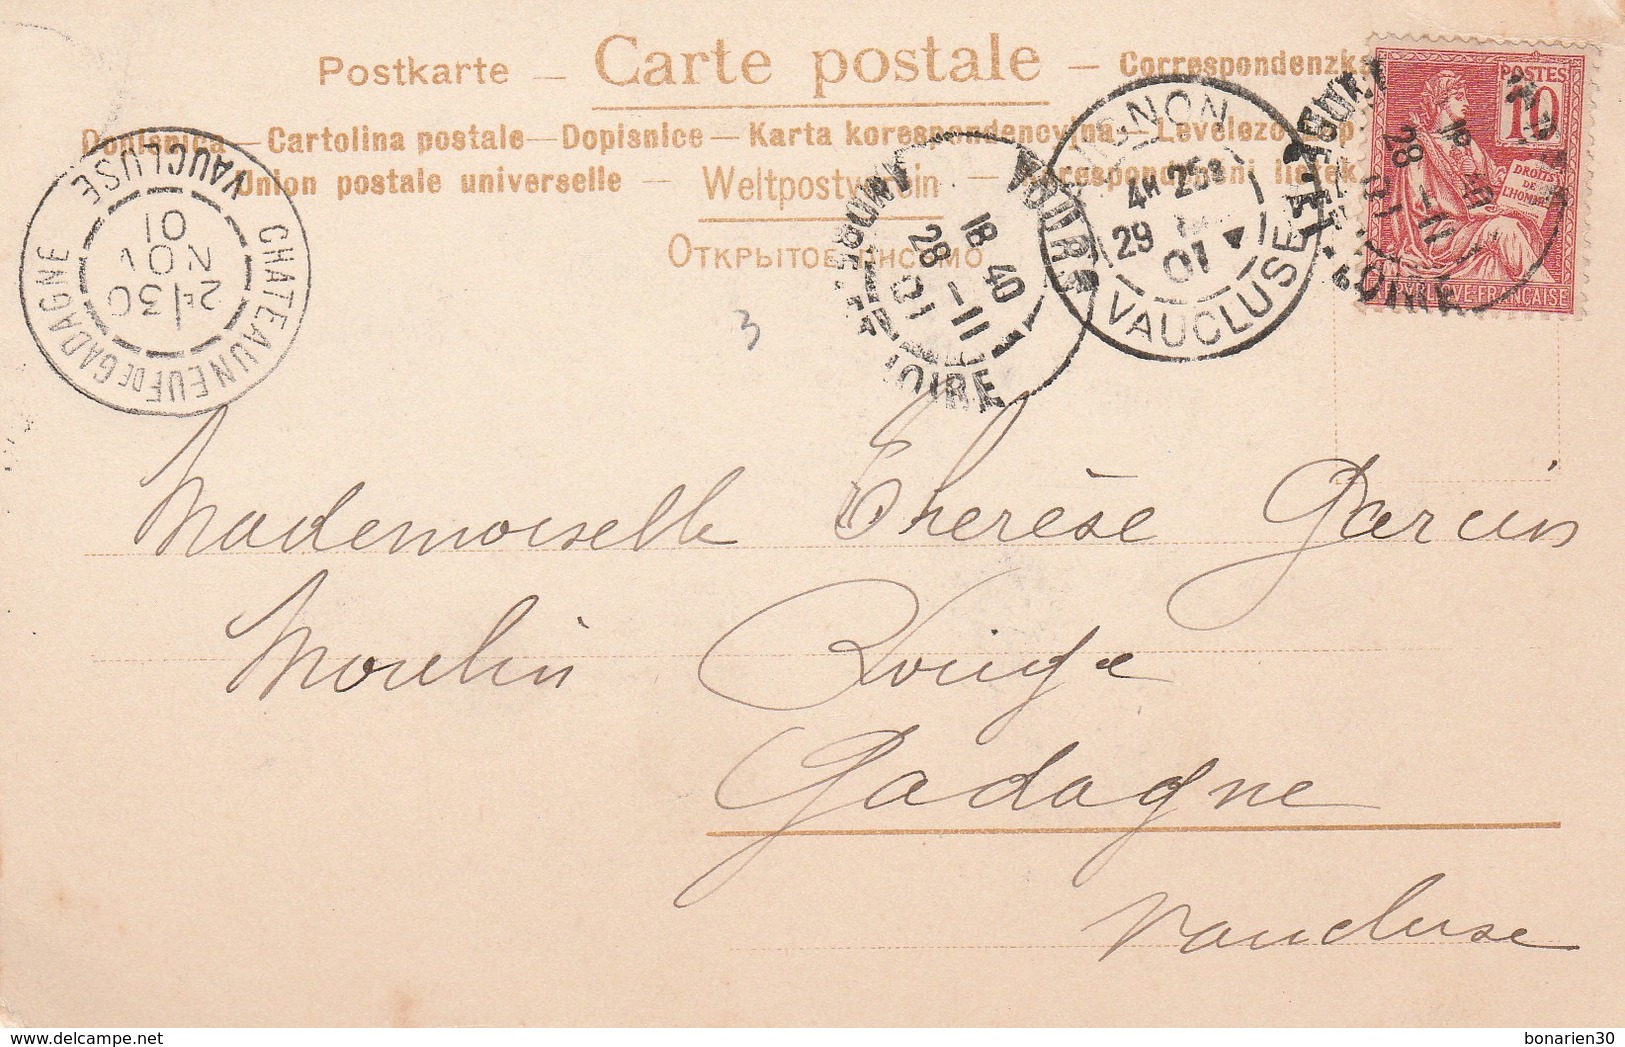 Postkarte — Carte postale — Correspondenzka
Dopisnica — Cartolina postale — Dopisnice — Karta korespondencyjna — Levelezo
Union postale universelle — Weltpostverein —
Открытое письмо
CHATEAUNEUF DE GADAGNE
VAUCLUSE
2E/30
NOV
01
TOURS
18 40
28-11
01
LOIRE
AVIGNON
4H 25S
29
01
VAUCLUSE
18 40
28-11
01
LOIRE
POSTES
10
DROITS
DE
L'HOMME
REPUBLIQUE FRANÇAISE
3
Mademoiselle Thérèse Garcin
Moulin Rouge
Gadagne
Vaucluse
bonarien30